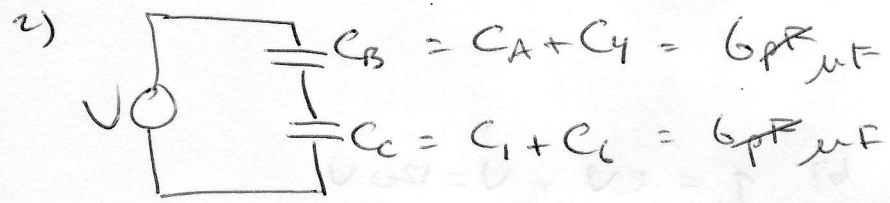 2)
C_B = C_A + C_4 = 6 p̶F̶ μF
V
C_C = C_1 + C_6 = 6 p̶F̶ μF